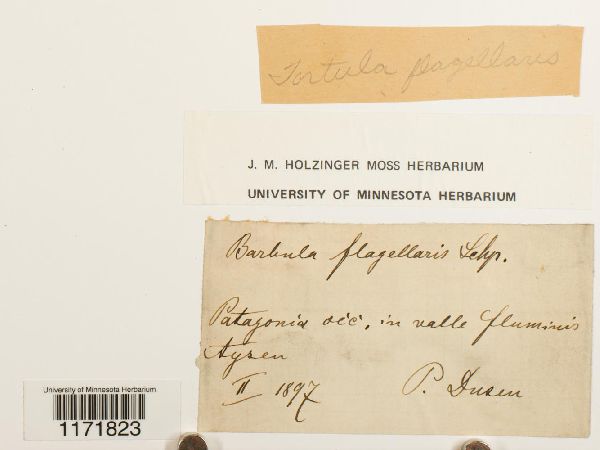 Tortula flagellaris
J. M. HOLZINGER MOSS HERBARIUM
UNIVERSITY OF MINNESOTA HERBARIUM
Barbula flagellaris Schp.
Patagonia occ., in valle fluminis
Aysen
II 1897
P. Dusen
University of Minnesota Herbarium
1171823